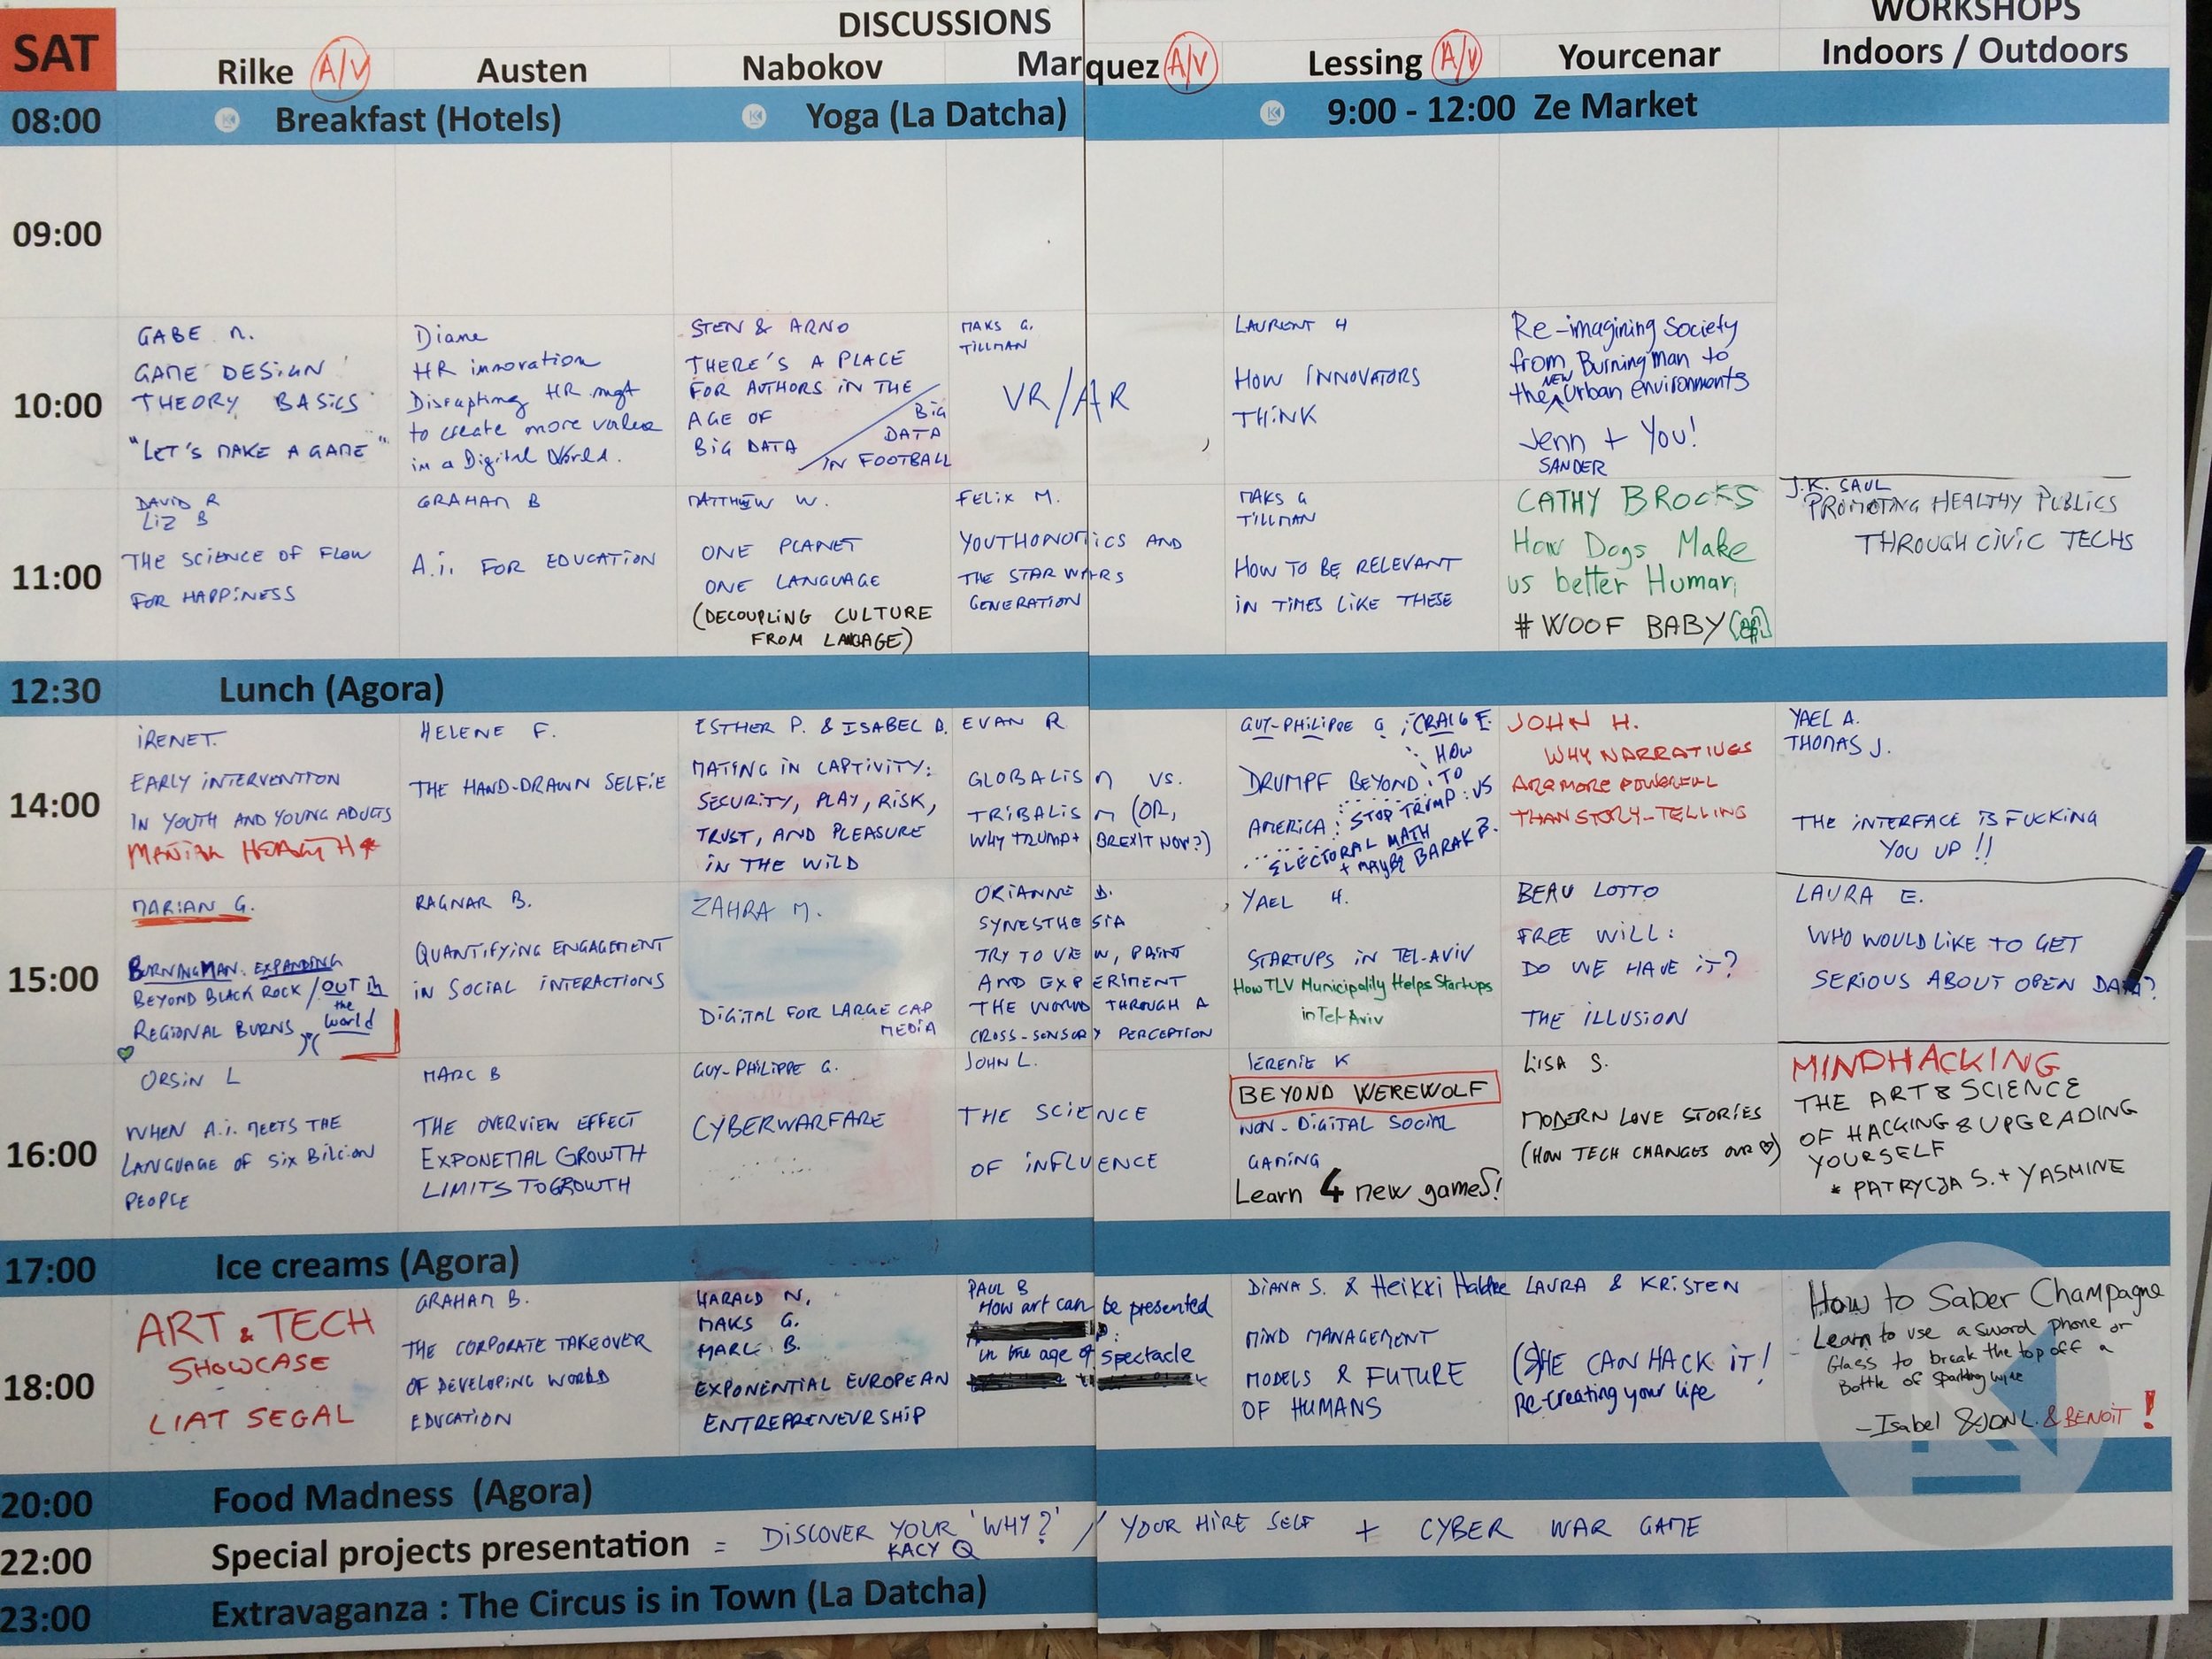 SAT
DISCUSSIONS
WORKSHOPS
Rilke A/V
Austen
Nabokov
Marquez A/V
Lessing A/V
Yourcenar
Indoors / Outdoors
08:00
Breakfast (Hotels)
Yoga (La Datcha)
9:00 - 12:00 Ze Market
09:00
10:00
GABE N.
GAME DESIGN
THEORY BASICS
"LET'S MAKE A GAME"
Diane
HR innovation
Disrupting HR mgt
to create more value
in a Digital World.
STEN & ARNO
THERE'S A PLACE
FOR AUTHORS IN THE
AGE OF
BIG DATA
BIG
DATA
IN FOOTBALL
MAKS G.
TILLMAN
VR/AR
LAURENT H
HOW INNOVATORS
THINK
Re-imagining Society
from Burning Man to
the NEW Urban environments
Jenn + You!
SANDER
11:00
DAVID R
LIZ B
THE SCIENCE OF FLOW
FOR HAPPINESS
GRAHAM B
A.I. FOR EDUCATION
MATTHEW W.
ONE PLANET
ONE LANGUAGE
(DECOUPLING CULTURE
FROM LANGAGE)
FELIX M.
YOUTHONOMICS AND
THE STAR WARS
GENERATION
MAKS G
TILLMAN
HOW TO BE RELEVANT
IN TIMES LIKE THESE
CATHY BROOKS
How Dogs Make
us better Human
# WOOF BABY
J.K. SAUL
PROMOTING HEALTHY PUBLICS
THROUGH CIVIC TECHS
12:30
Lunch (Agora)
14:00
IRENE T.
EARLY INTERVENTION
IN YOUTH AND YOUNG ADULTS
MENTAL HEALTH
HELENE F.
THE HAND-DRAWN SELFIE
ESTHER P. & ISABEL B.
MATING IN CAPTIVITY:
SECURITY, PLAY, RISK,
TRUST, AND PLEASURE
IN THE WILD
EVAN R
GLOBALISM VS.
TRIBALISM (OR,
WHY TRUMP + BREXIT NOW?)
GUY-PHILIPPE G ; CRAIG F.
HOW
DRUMPF BEYOND TO
AMERICA: STOP TRUMP: VS
ELECTORAL MATH
+ MAYBE BARAK B.
JOHN H.
WHY NARRATIVES
ARE MORE POWERFUL
THAN STORY-TELLING
YAEL A.
THOMAS J.
THE INTERFACE IS FUCKING
YOU UP !!
15:00
MARIAN G.
BURNING MAN: EXPANDING
BEYOND BLACK ROCK / OUT in
the
REGIONAL BURNS world
RAGNAR B.
QUANTIFYING ENGAGEMENT
IN SOCIAL INTERACTIONS
ZAHRA M.
DIGITAL FOR LARGE CAP
MEDIA
ORIANNE D.
SYNESTHESIA
TRY TO VIEW, PAINT
AND EXPERIMENT
THE WORLD THROUGH A
CROSS-SENSORY PERCEPTION
YAEL H.
STARTUPS IN TEL-AVIV
How TLV Municipality Helps Startups
in Tel-Aviv
BEAU LOTTO
FREE WILL:
DO WE HAVE IT?
THE ILLUSION
LAURA E.
WHO WOULD LIKE TO GET
SERIOUS ABOUT OPEN DATA?
16:00
ORSIN L
WHEN A.I. MEETS THE
LANGUAGE OF SIX BILLION
PEOPLE
MARC B
THE OVERVIEW EFFECT
EXPONETIAL GROWTH
LIMITS TO GROWTH
GUY-PHILIPPE G.
CYBERWARFARE
JOHN L.
THE SCIENCE
OF INFLUENCE
JEREMIE K
BEYOND WEREWOLF
NON-DIGITAL SOCIAL
GAMING
Learn 4 new games!
LISA S.
MODERN LOVE STORIES
(HOW TECH CHANGES OUR ♡)
MINDHACKING
THE ART & SCIENCE
OF HACKING & UPGRADING
YOURSELF
* PATRYCJA S. + YASMINE
17:00
Ice creams (Agora)
18:00
ART & TECH
SHOWCASE
LIAT SEGAL
GRAHAM B.
THE CORPORATE TAKEOVER
OF DEVELOPING WORLD
EDUCATION
HARALD N,
MAKS G.
MARC B.
EXPONENTIAL EUROPEAN
ENTREPRENEURSHIP
PAUL B
How art can be presented
in the age of spectacle
DIANA S. & Heikki
MIND MANAGEMENT
MODELS & FUTURE
OF HUMANS
LAURA & KRISTEN
(S)HE CAN HACK IT!
Re-creating your life
How to Saber Champagne
Learn to use a sword phone or
Glass to break the top off a
Bottle of Sparkling wine
-Isabel & JON L. & BENOIT !
20:00
Food Madness (Agora)
22:00
Special projects presentation = DISCOVER YOUR 'WHY?' / YOUR HIRE SELF + CYBER WAR GAME
KACY Q
23:00
Extravaganza : The Circus is in Town (La Datcha)